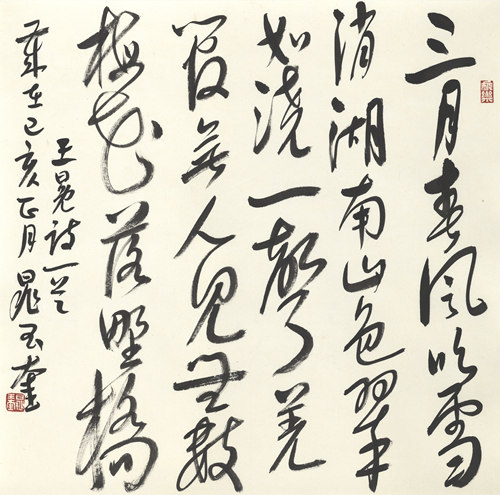 三月春風吹雪
消湖南山色翠
如澆一聲羌
管無人見無數
梅花落野橋
王冕詩一首
歲在己亥正月晁玉奎